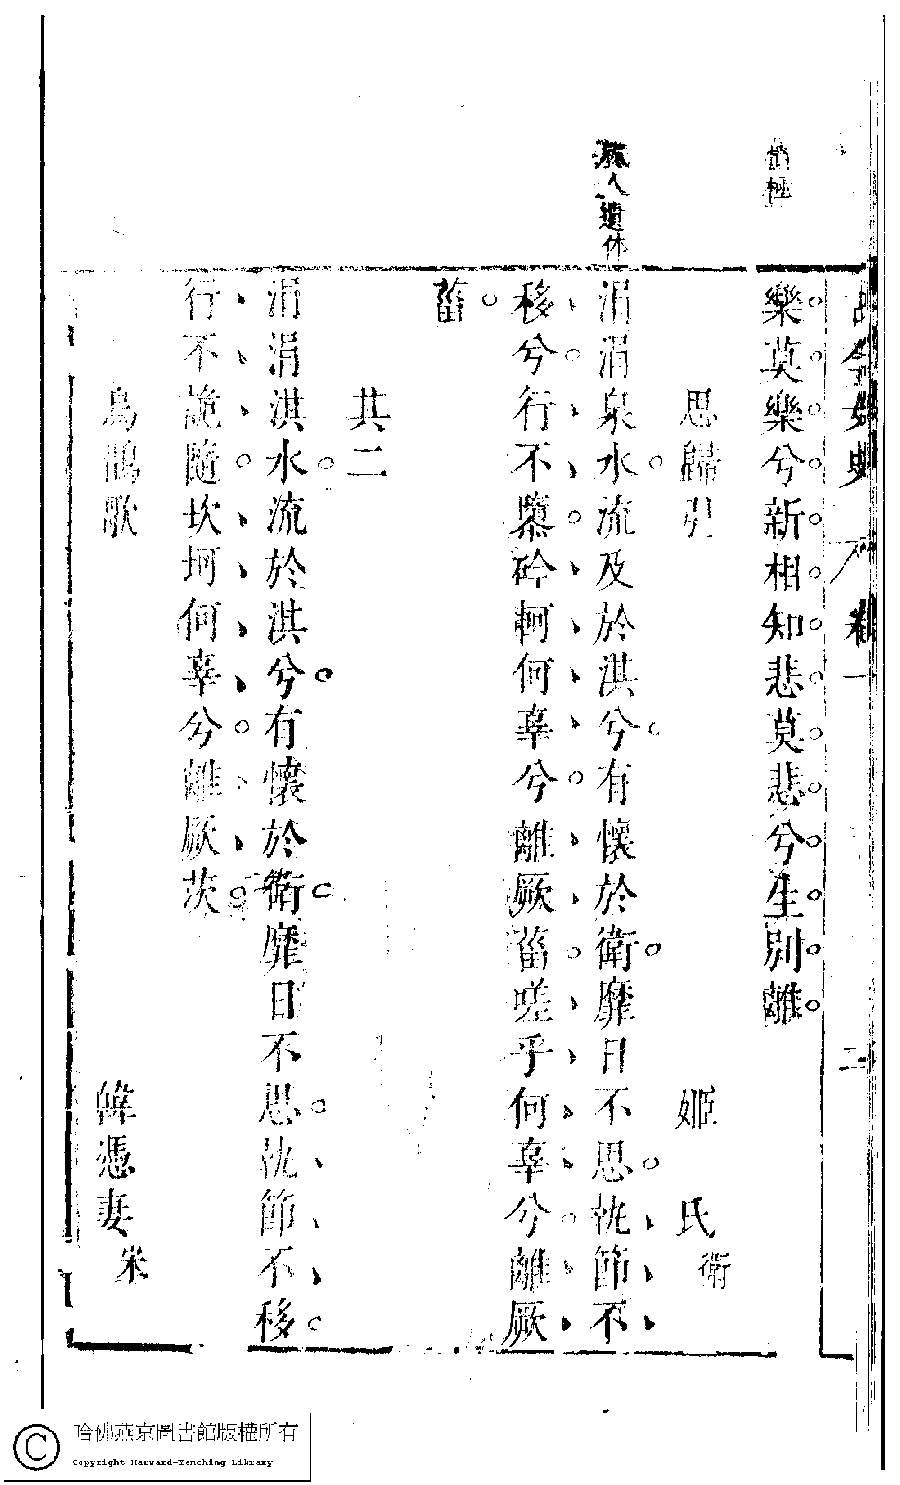 古今女史 卷一 二
樂莫樂兮新相知悲莫悲兮生別離
思歸引 姬氏衛
風人遺休
涓涓泉水流及於淇兮有懷於衛靡日不思執節不
移兮行不隳砱軻何辜兮離厥菑嗟乎何辜兮離厥
菑
其二
涓涓淇水流於淇兮有懷於衛靡日不思執節不移
行不詭隨坎坷何辜兮離厥茨
烏鵲歌 韓憑妻宋
哈佛燕京圖書館版權所有
Copyright Harvard-Yenching Library